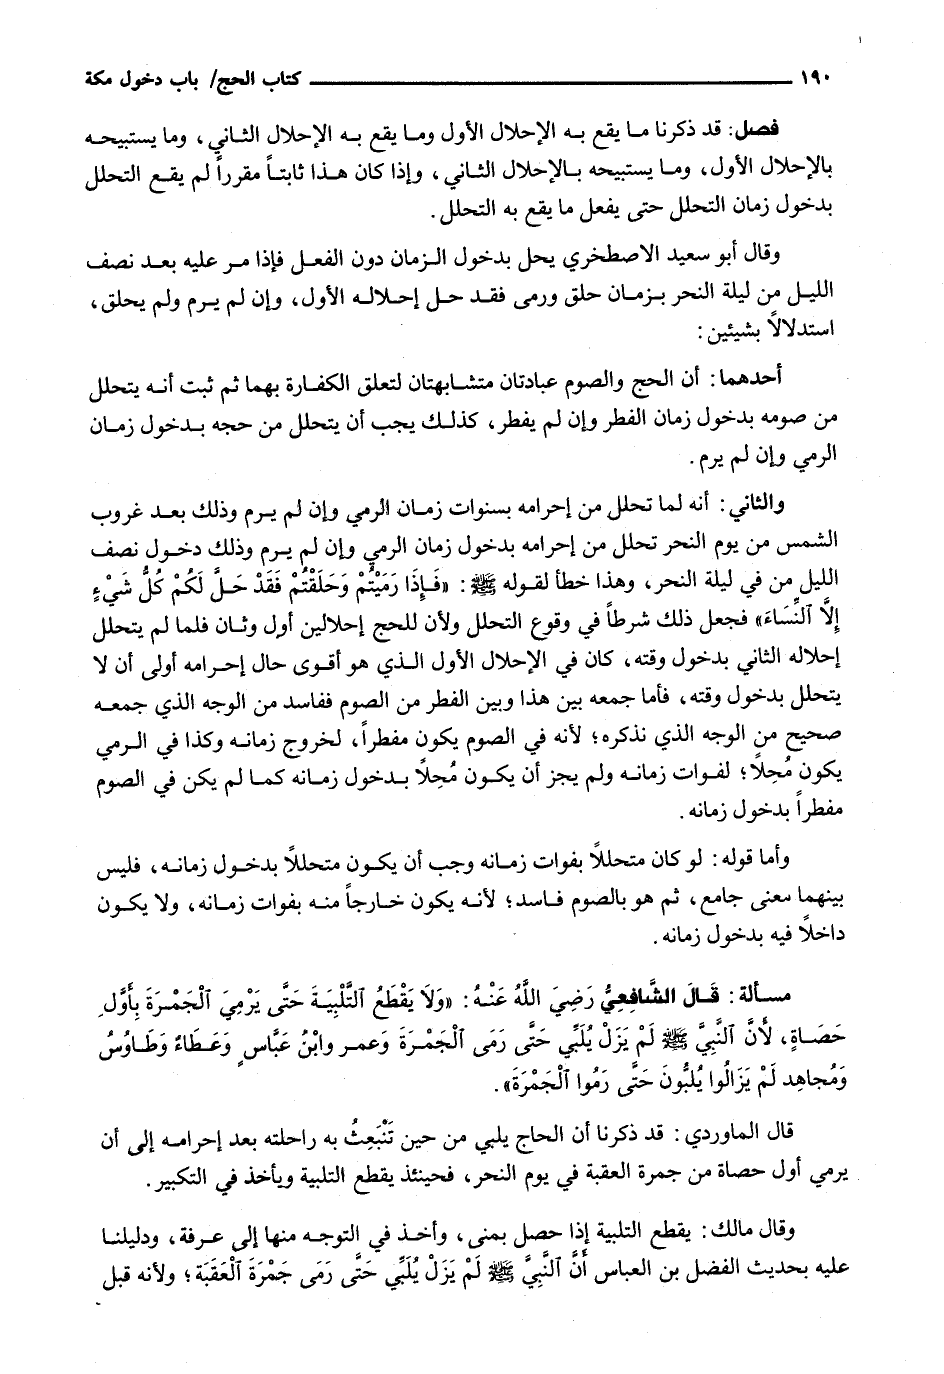 ١٩٠ ــــــــــــــــــــــــ كتاب الحج/ باب دخول مكة
فصل: قد ذكرنا ما يقع به الإحلال الأول وما يقع به الإحلال الثاني، وما يستبيحه
بالإحلال الأول، وما يستبيحه بالإحلال الثاني، وإذا كان هذا ثابتاً مقرراً لم يقع التحلل
بدخول زمان التحلل حتى يفعل ما يقع به التحلل.
وقال أبو سعيد الاصطخري يحل بدخول الزمان دون الفعل فإذا مر عليه بعد نصف
الليل من ليلة النحر بزمان حلق ورمى فقد حل إحلاله الأول، وإن لم يرم ولم يحلق،
استدلالاً بشيئين:
أحدهما: أن الحج والصوم عبادتان متشابهتان لتعلق الكفارة بهما ثم ثبت أنه يتحلل
من صومه بدخول زمان الفطر وإن لم يفطر، كذلك يجب أن يتحلل من حجه بدخول زمان
الرمي وإن لم يرم.
والثاني: أنه لما تحلل من إحرامه بسنوات زمان الرمي وإن لم يرم وذلك بعد غروب
الشمس من يوم النحر تحلل من إحرامه بدخول زمان الرمي وإن لم يرم وذلك دخول نصف
الليل من في ليلة النحر، وهذا خطأ لقوله ﷺ: «فَإِذَا رَمَيْتُمْ وَحَلَقْتُمْ فَقَدْ حَلَّ لَكُمْ كُلُّ شَيْءٍ
إِلَّا ٱلنِّسَاءَ» فجعل ذلك شرطاً في وقوع التحلل ولأن للحج إحلالين أول وثان فلما لم يتحلل
إحلاله الثاني بدخول وقته، كان في الإحلال الأول الذي هو أقوى حال إحرامه أولى أن لا
يتحلل بدخول وقته، فأما جمعه بين هذا وبين الفطر من الصوم ففاسد من الوجه الذي جمعه
صحيح من الوجه الذي نذكره؛ لأنه في الصوم يكون مفطراً، لخروج زمانه وكذا في الرمي
يكون مُحِلاً؛ لفوات زمانه ولم يجز أن يكون مُحِلاً بدخول زمانه كما لم يكن في الصوم
مفطراً بدخول زمانه.
وأما قوله: لو كان متحللاً بفوات زمانه وجب أن يكون متحللاً بدخول زمانه، فليس
بينهما معنى جامع، ثم هو بالصوم فاسد؛ لأنه يكون خارجاً منه بفوات زمانه، ولا يكون
داخلاً فيه بدخول زمانه.
مسألة: قَالَ الشَّافِعِيُّ رَضِيَ اللَّهُ عَنْهُ: «وَلَا يَقْطَعُ ٱلتَّلْبِيَةَ حَتَّى يَرْمِيَ ٱلْجَمْرَةَ بِأَوَّلِ
حَصَاةٍ، لأَنَّ ٱلنَّبِيَّ ﷺ لَمْ يَزَلْ يُلَبِّي حَتَّى رَمَى ٱلْجَمْرَةَ وَعمر وابْنُ عَبَّاسٍ وَعَطَاءُ وَطَاوُسُ
وَمُجاهِد لَمْ يَزَالُوا يُلبُّونَ حَتَّى رَمُوا ٱلْجَمْرَةَ».
قال الماوردي: قد ذكرنا أن الحاج يلبي من حين تَنْبَعِثُ به راحلته بعد إحرامه إلى أن
يرمي أول حصاة من جمرة العقبة في يوم النحر، فحينئذ يقطع التلبية ويأخذ في التكبير.
وقال مالك: يقطع التلبية إذا حصل بمنى، وأخذ في التوجه منها إلى عرفة، ودليلنا
عليه بحديث الفضل بن العباس أَنَّ ٱلنَّبِيَّ ﷺ لَمْ يَزَلْ يُلَبِّي حَتَّى رَمَى جَمْرَةَ ٱلْعَقَبَةَ؛ ولأنه قبل